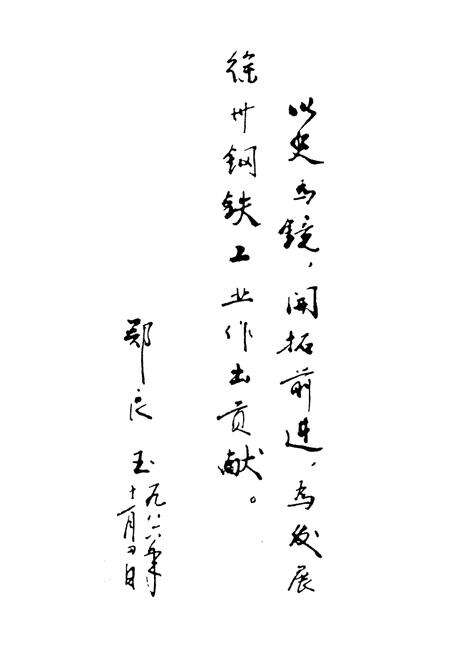 以史为镜，开拓前进，为发展
徐州钢铁工业作出贡献。
郑良玉
一九八六年
十一月四日